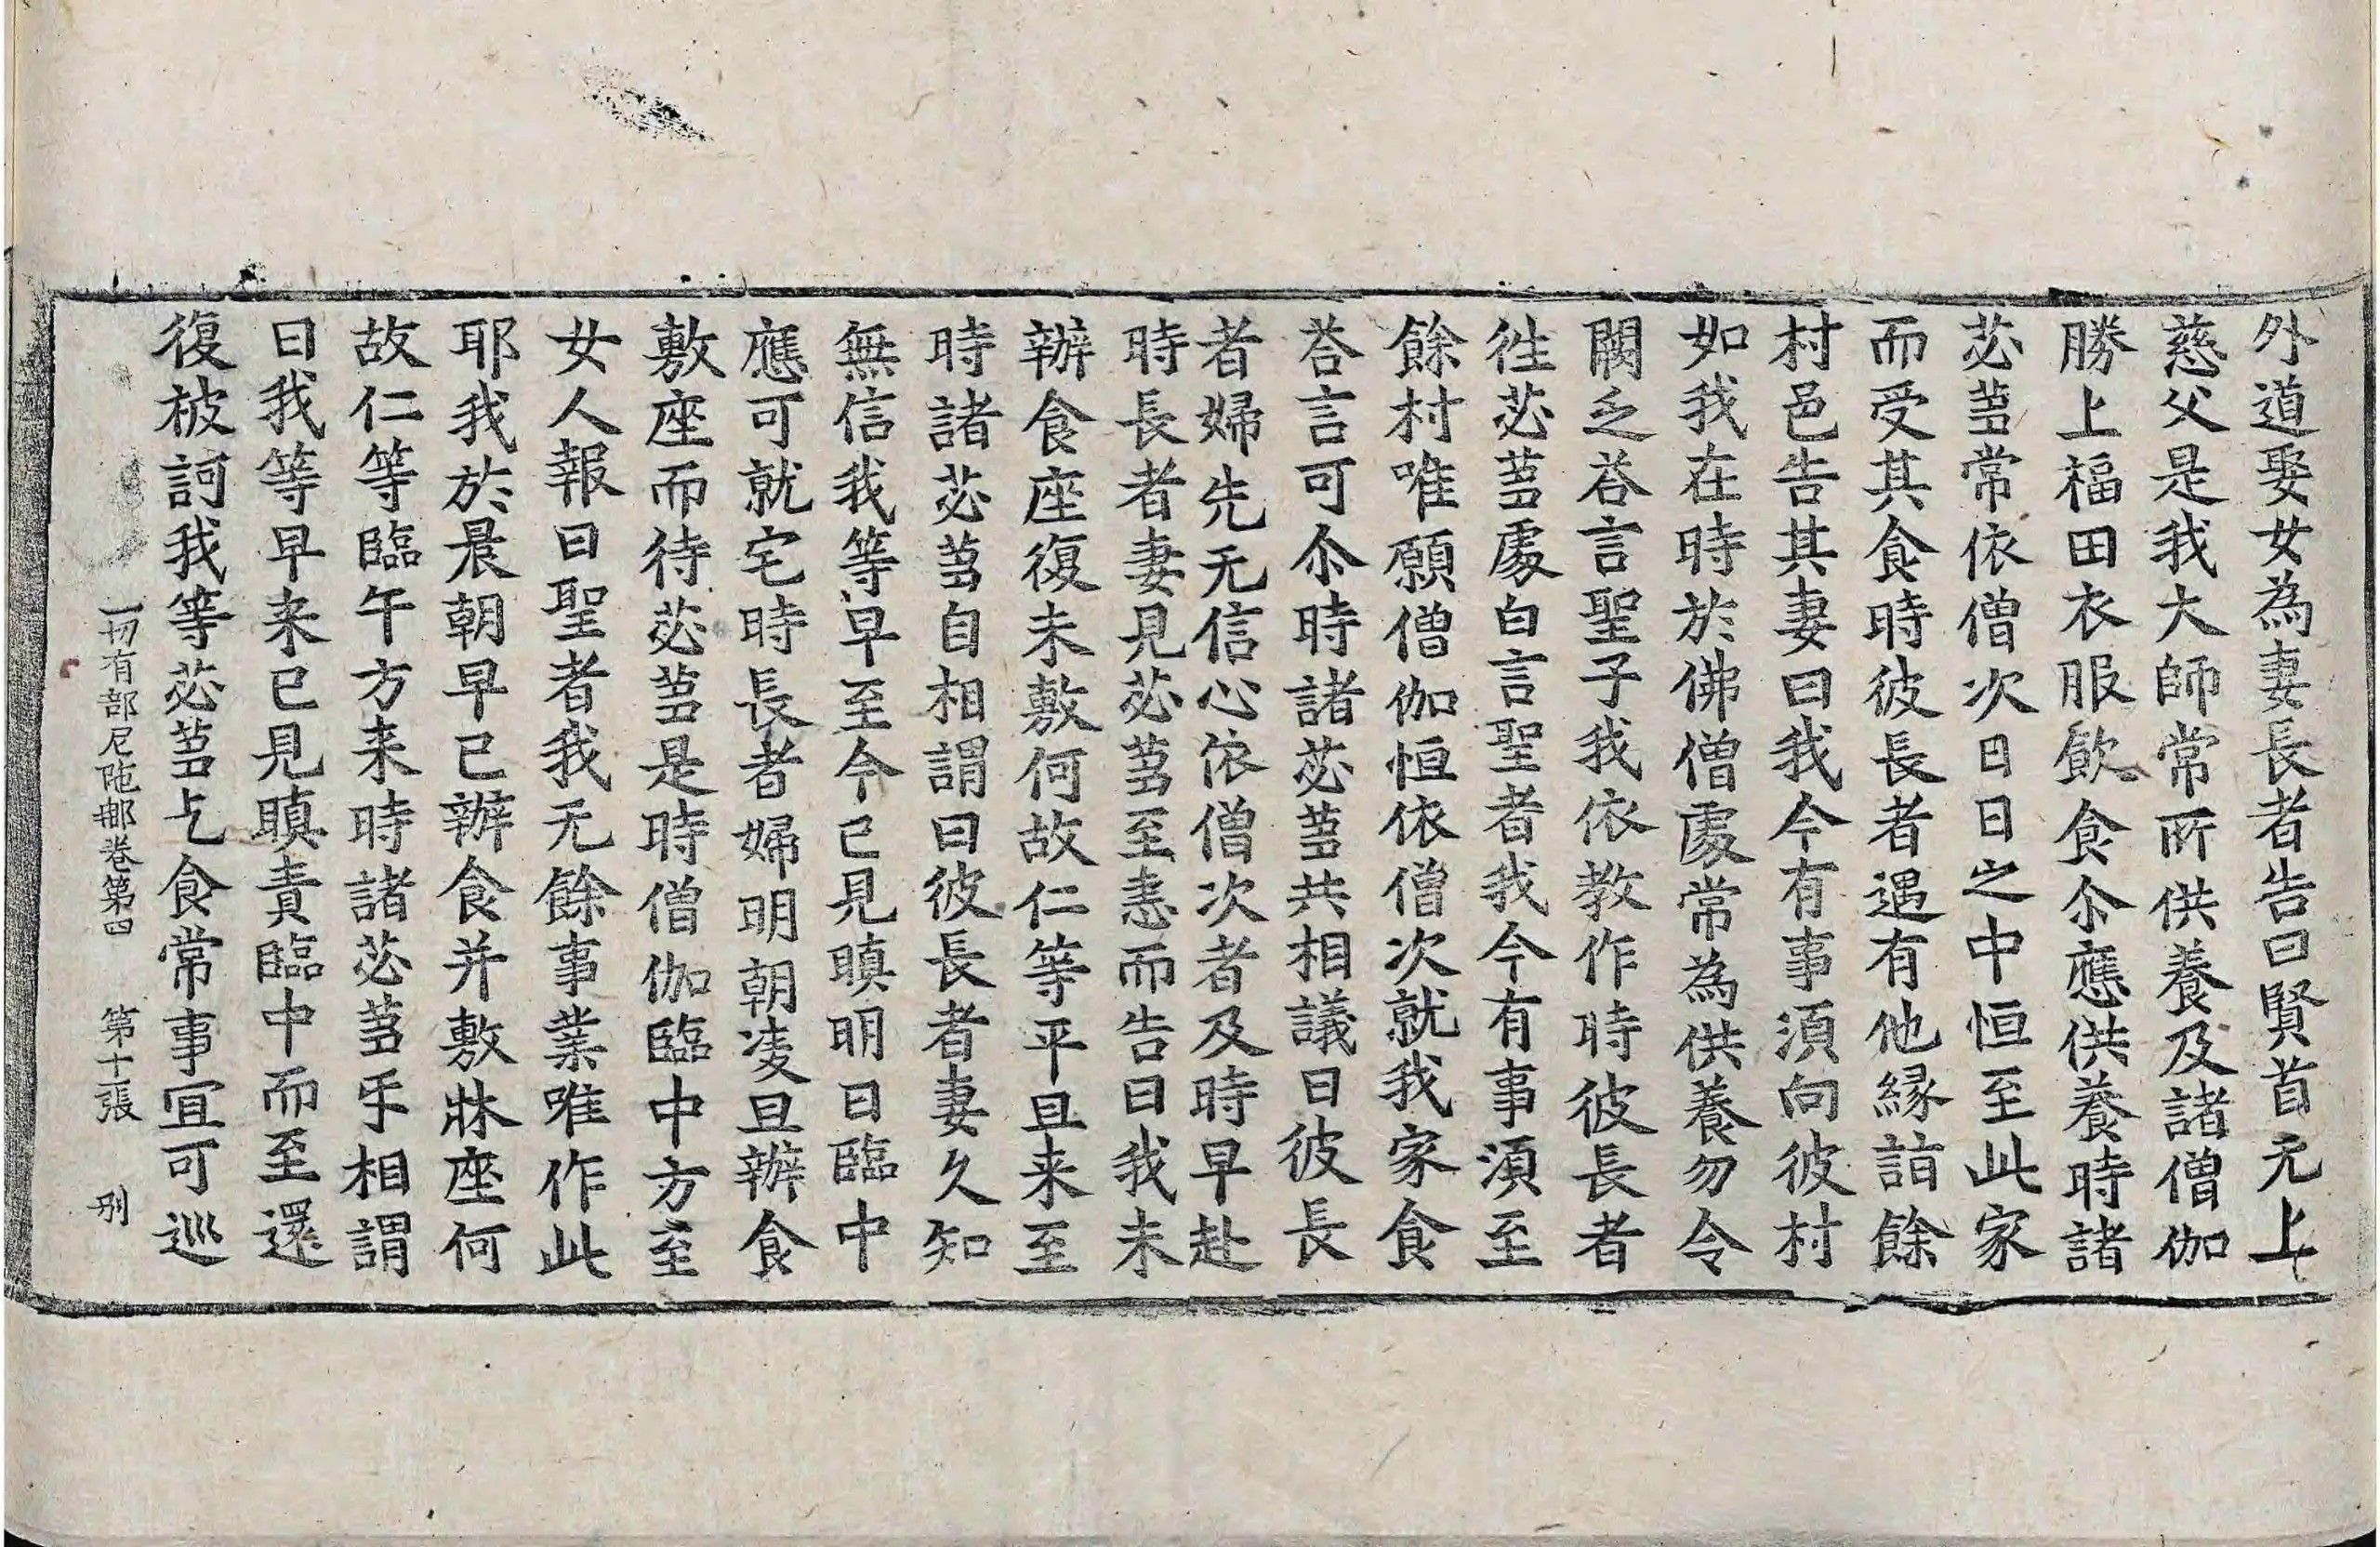 外道娶女為妻長者告曰賢首无上
慈父是我大師常所供養及諸僧伽
勝上福田衣服飮食尒應供養時諸
苾蒭常依僧次日日之中恒至此家
而受其食時彼長者遇有他縁詣餘
村邑告其妻曰我今有事湏向彼村
如我在時於佛僧處常為供養勿令
闕乏荅言聖子我依教作時彼長者
徃苾蒭處白言聖者我今有事湏至
餘村唯願僧伽恒依僧次就我家食
荅言可尒時諸苾蒭共相議曰彼長
者婦先无信心依僧次者及時早赴
時長者妻見苾蒭至恚而告曰我未
辦食座復未敷何故仁等平旦来至
時諸苾蒭自相謂曰彼長者妻久知
無信我等早至今已見瞋明日臨中
應可就宅時長者婦明朝凌旦辦食
敷座而待苾蒭是時僧伽臨中方至
女人報曰聖者我无餘事業唯作此
耶我於晨朝早已辦食并敷牀座何
故仁等臨午方来時諸苾蒭㸦相謂
曰我等早来已見瞋責臨中而至還
復被訶我等苾蒭乞食常事宜可巡
一切有部尼陁𨚗卷第四　第十張　別